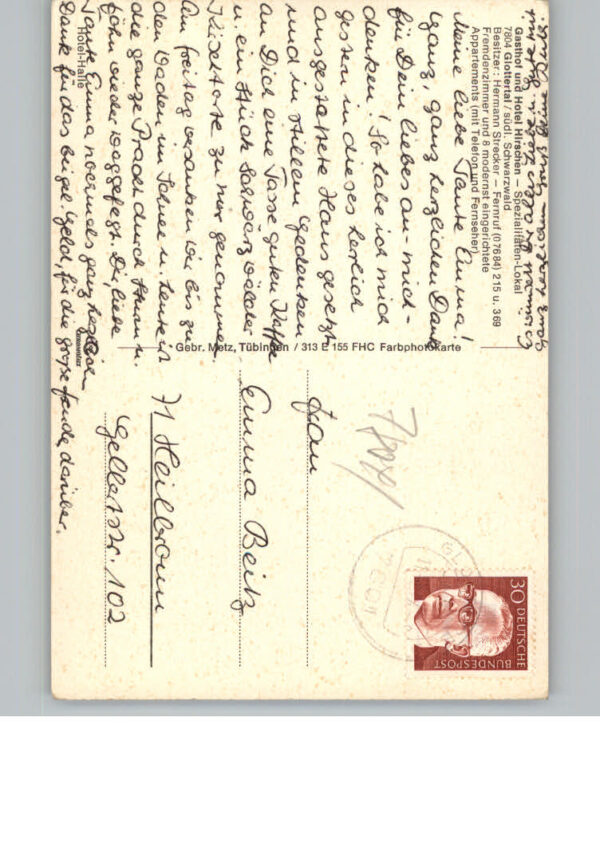 Gasthof und Hotel Hirschen · Spezialitäten-Lokal
7804 Glottertal / südl. Schwarzwald
Besitzer: Hermann Strecker – Fernruf (07684) 215 u. 369
Fremdenzimmer und 8 modernst eingerichtete
Appartements (mit Telefon und Fernseher)
Meine liebe Tante Emma!
Ganz, ganz herzlichen Dank
für Dein liebes an-mich-
denken! So habe ich mich
gestern in dieses herrlich
ausgestattete Haus gesetzt
und in stillem Gedenken
an Dich eine Tasse guten Kaffee
u. ein Stück Schwarzwälder
Kirschtorte zu mir genommen.
Am Freitag versanken wir bis zu
den Waden im Schnee u. heute ist
die ganze Pracht durch Sturm u.
Föhn wieder weggefegt. Du liebe
Tante Emma nochmals ganz herzlichen
Dank für das Geld, für die große Freude darüber.
Hotel-Halle
Gebr. Metz, Tübingen / 313 E 155 FHC Farbphotokarte
Frau
Emma Beitz
71 Heilbronn
Gellertstr. 102
30 DEUTSCHE
BUNDESPOST